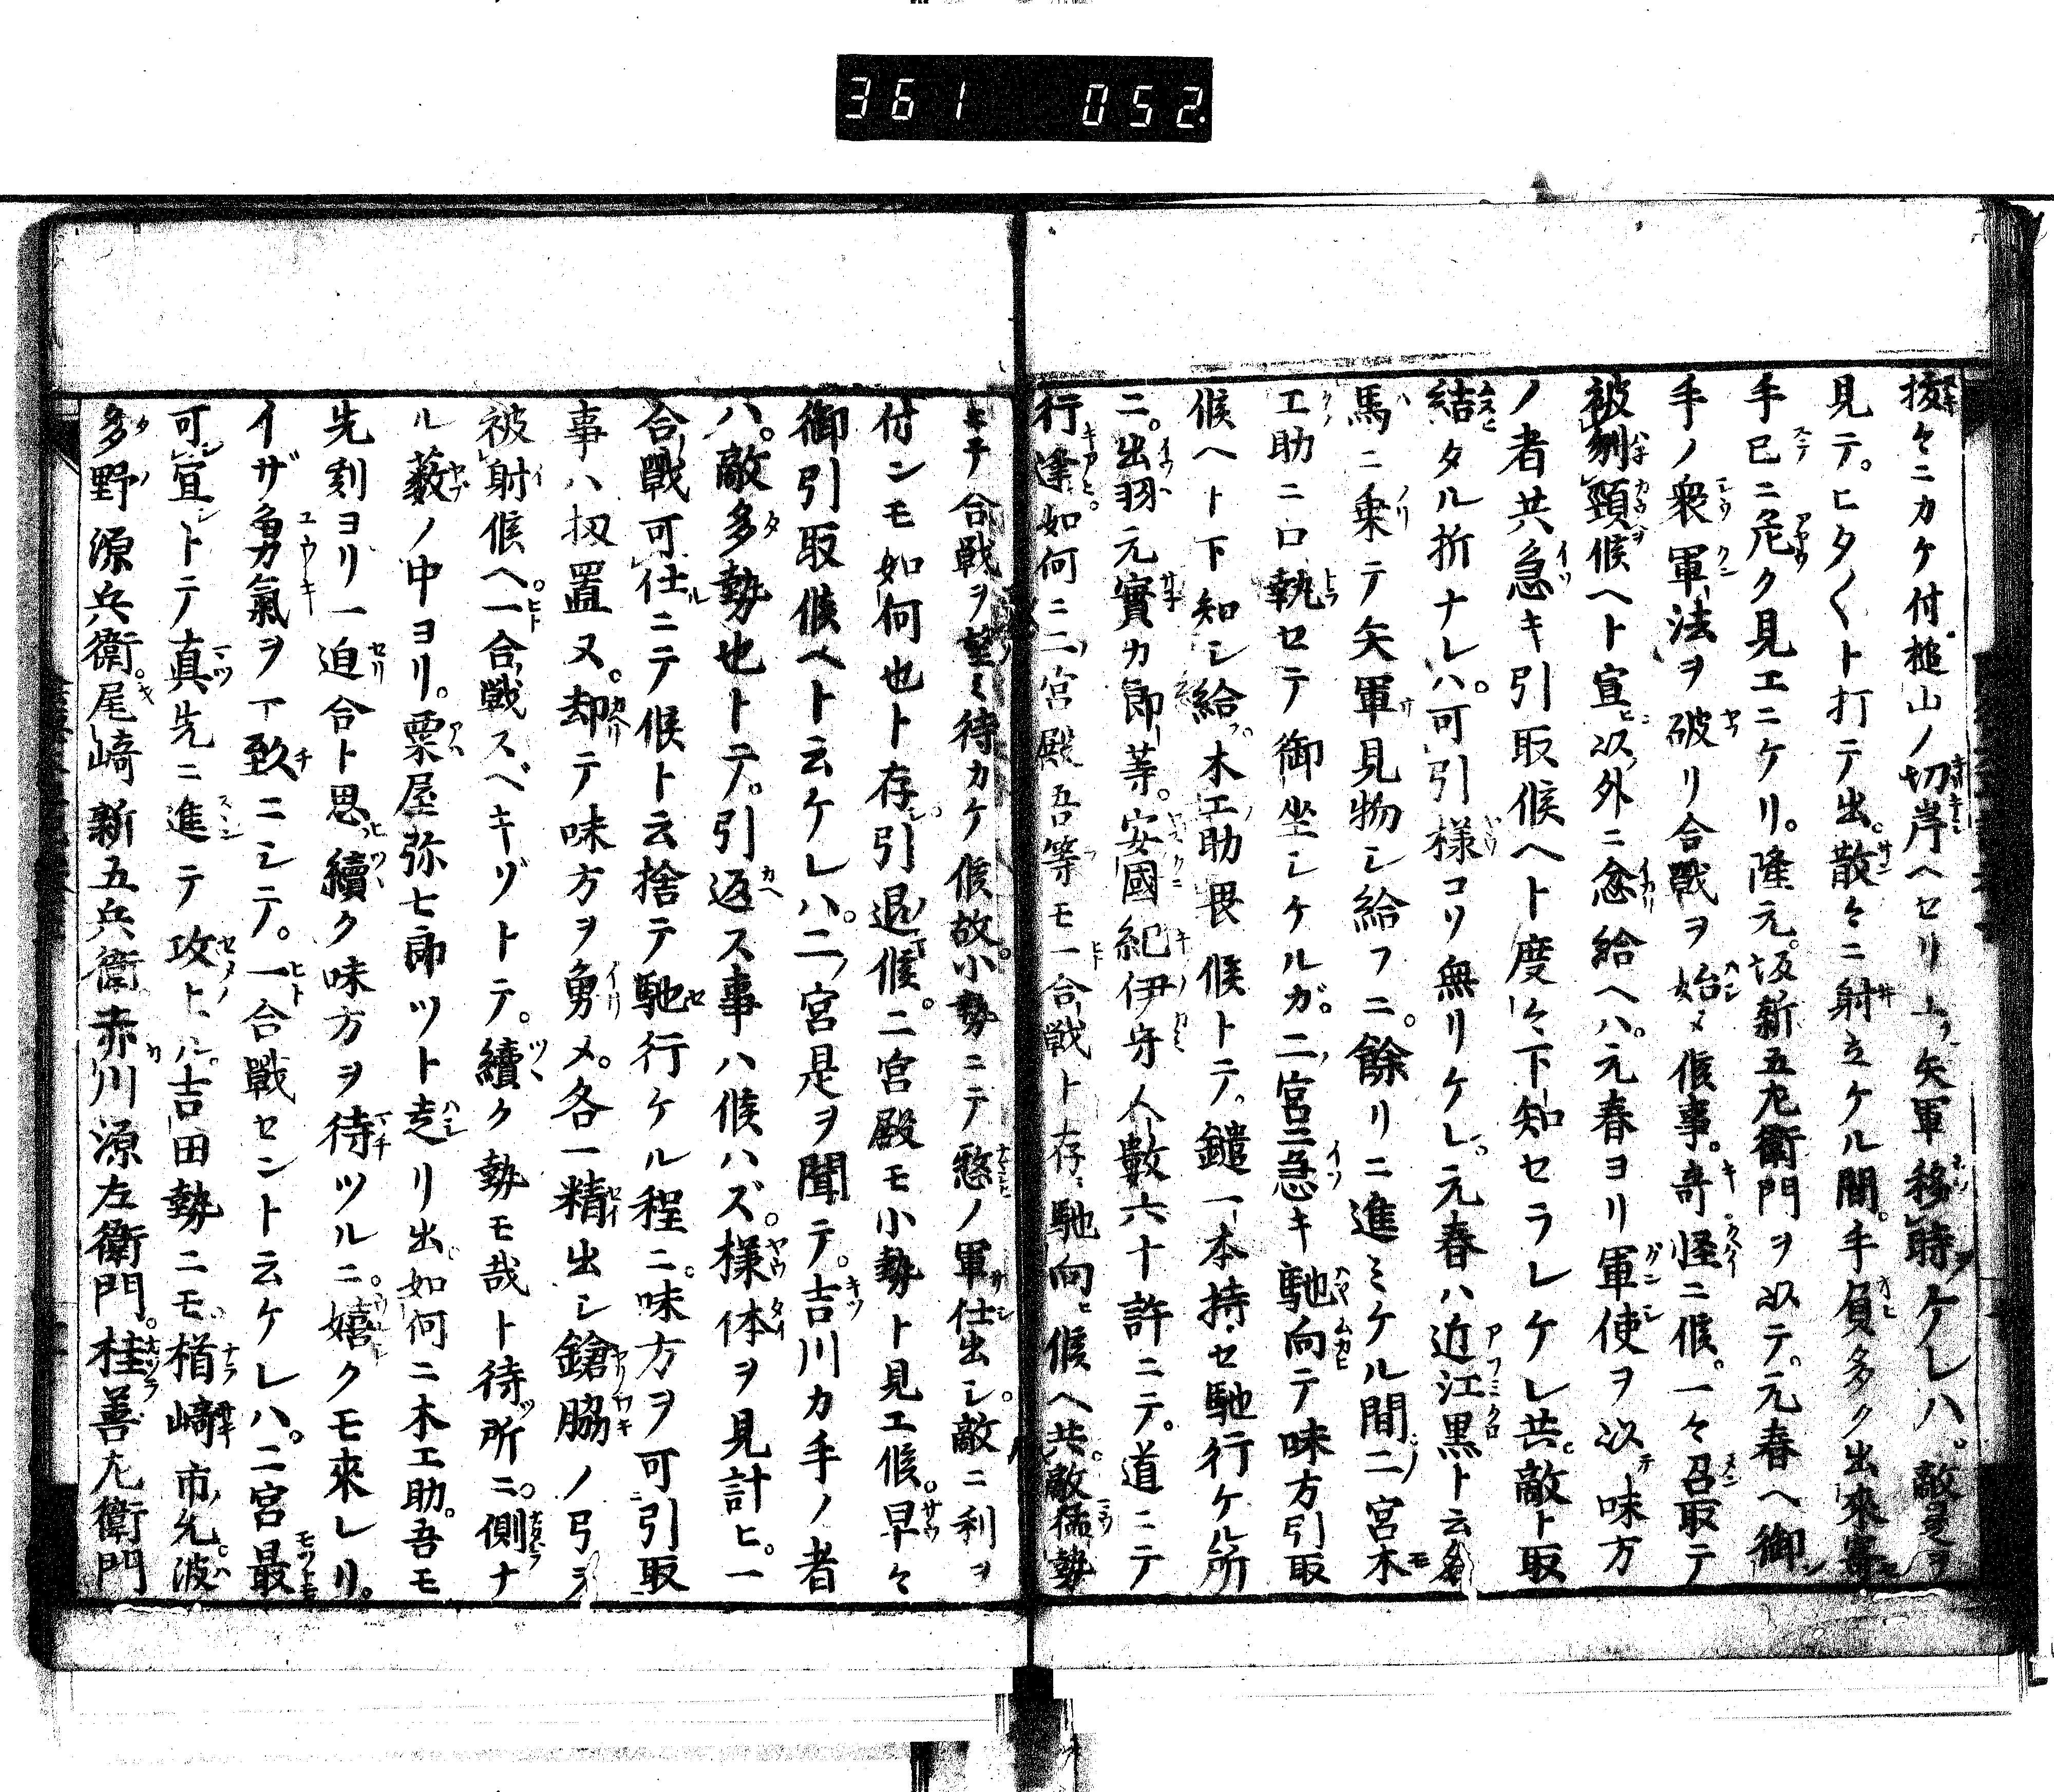 361 052.
援々ニカケ付槌山ノ切岸ヘセリ上リ矢軍移時ケレハ。敵是ヲ
見テ。ヒタ〱ト打テ出。散々ニ射立ケル間。手負多ク出來寄
手已ニ危ク見エニケリ。隆元。坂新五左衛門ヲ以テ。元春ヘ御
手ノ衆軍法ヲ破リ合戰ヲ始メ候事。奇怪ニ候。一々召取テ
被刎頸候ヘト宣。以外ニ忿給ヘハ。元春ヨリ軍使ヲ以テ味方
ノ者共急キ引取候ヘト度々下知セラレケレ共。敵ト取
結タル折ナレハ。可引様コソ無リケレ。元春ハ近江黒ト云
馬ニ乗テ矢軍見物シ給フニ。餘リニ進ミケル間二宮木
工助ニ口執セテ御坐シケルガ。二宮急キ馳向テ味方引取
候ヘト下知シ給。木工助畏候トテ。鑓一本持セ馳行ケル所
ニ。出羽元實カ郎等。安國紀伊守人數六十許ニテ。道ニテ
行逢。如何ニ二宮殿吾等モ一合戰ト存。馳向候ヘ共。敵猛勢
ニテ合戰ヲ望ミ待カケ候故。小勢ニテ憖ノ軍仕出シ。敵ニ利ヲ
付ンモ如何也ト存。引退候。二宮殿モ小勢ト見エ候。早々
御引取候ヘト云ケレハ。二宮是ヲ聞テ。吉川カ手ノ者
ハ。敵多勢也トテ。引返ス事ハ候ハズ。様体ヲ見計ヒ。一
合戰可仕ニテ候ト云捨テ馳行ケル程ニ。味方ヲ可引取
事ハ扨置ヌ。却テ味方ヲ勇メ。各一精出シ鎗脇ノ弓ヲ
被射候ヘ。一合戰スベキゾトテ。續ク勢モ哉ト待所ニ。側ナ
ル藪ノ中ヨリ。粟屋弥七郎ツト走リ出。如何ニ木工助。吾モ
先刻ヨリ一迫合ト思。續ク味方ヲ待ツルニ。嬉クモ來レリ。
イザ勇氣ヲ一致ニシテ。一合戰セント云ケレハ。二宮最
可宜トテ真先ニ進テ攻上ル。吉田勢ニモ楢﨑市允波
多野源兵衛。尾﨑新五兵衛赤川源左衛門。桂善左衛門